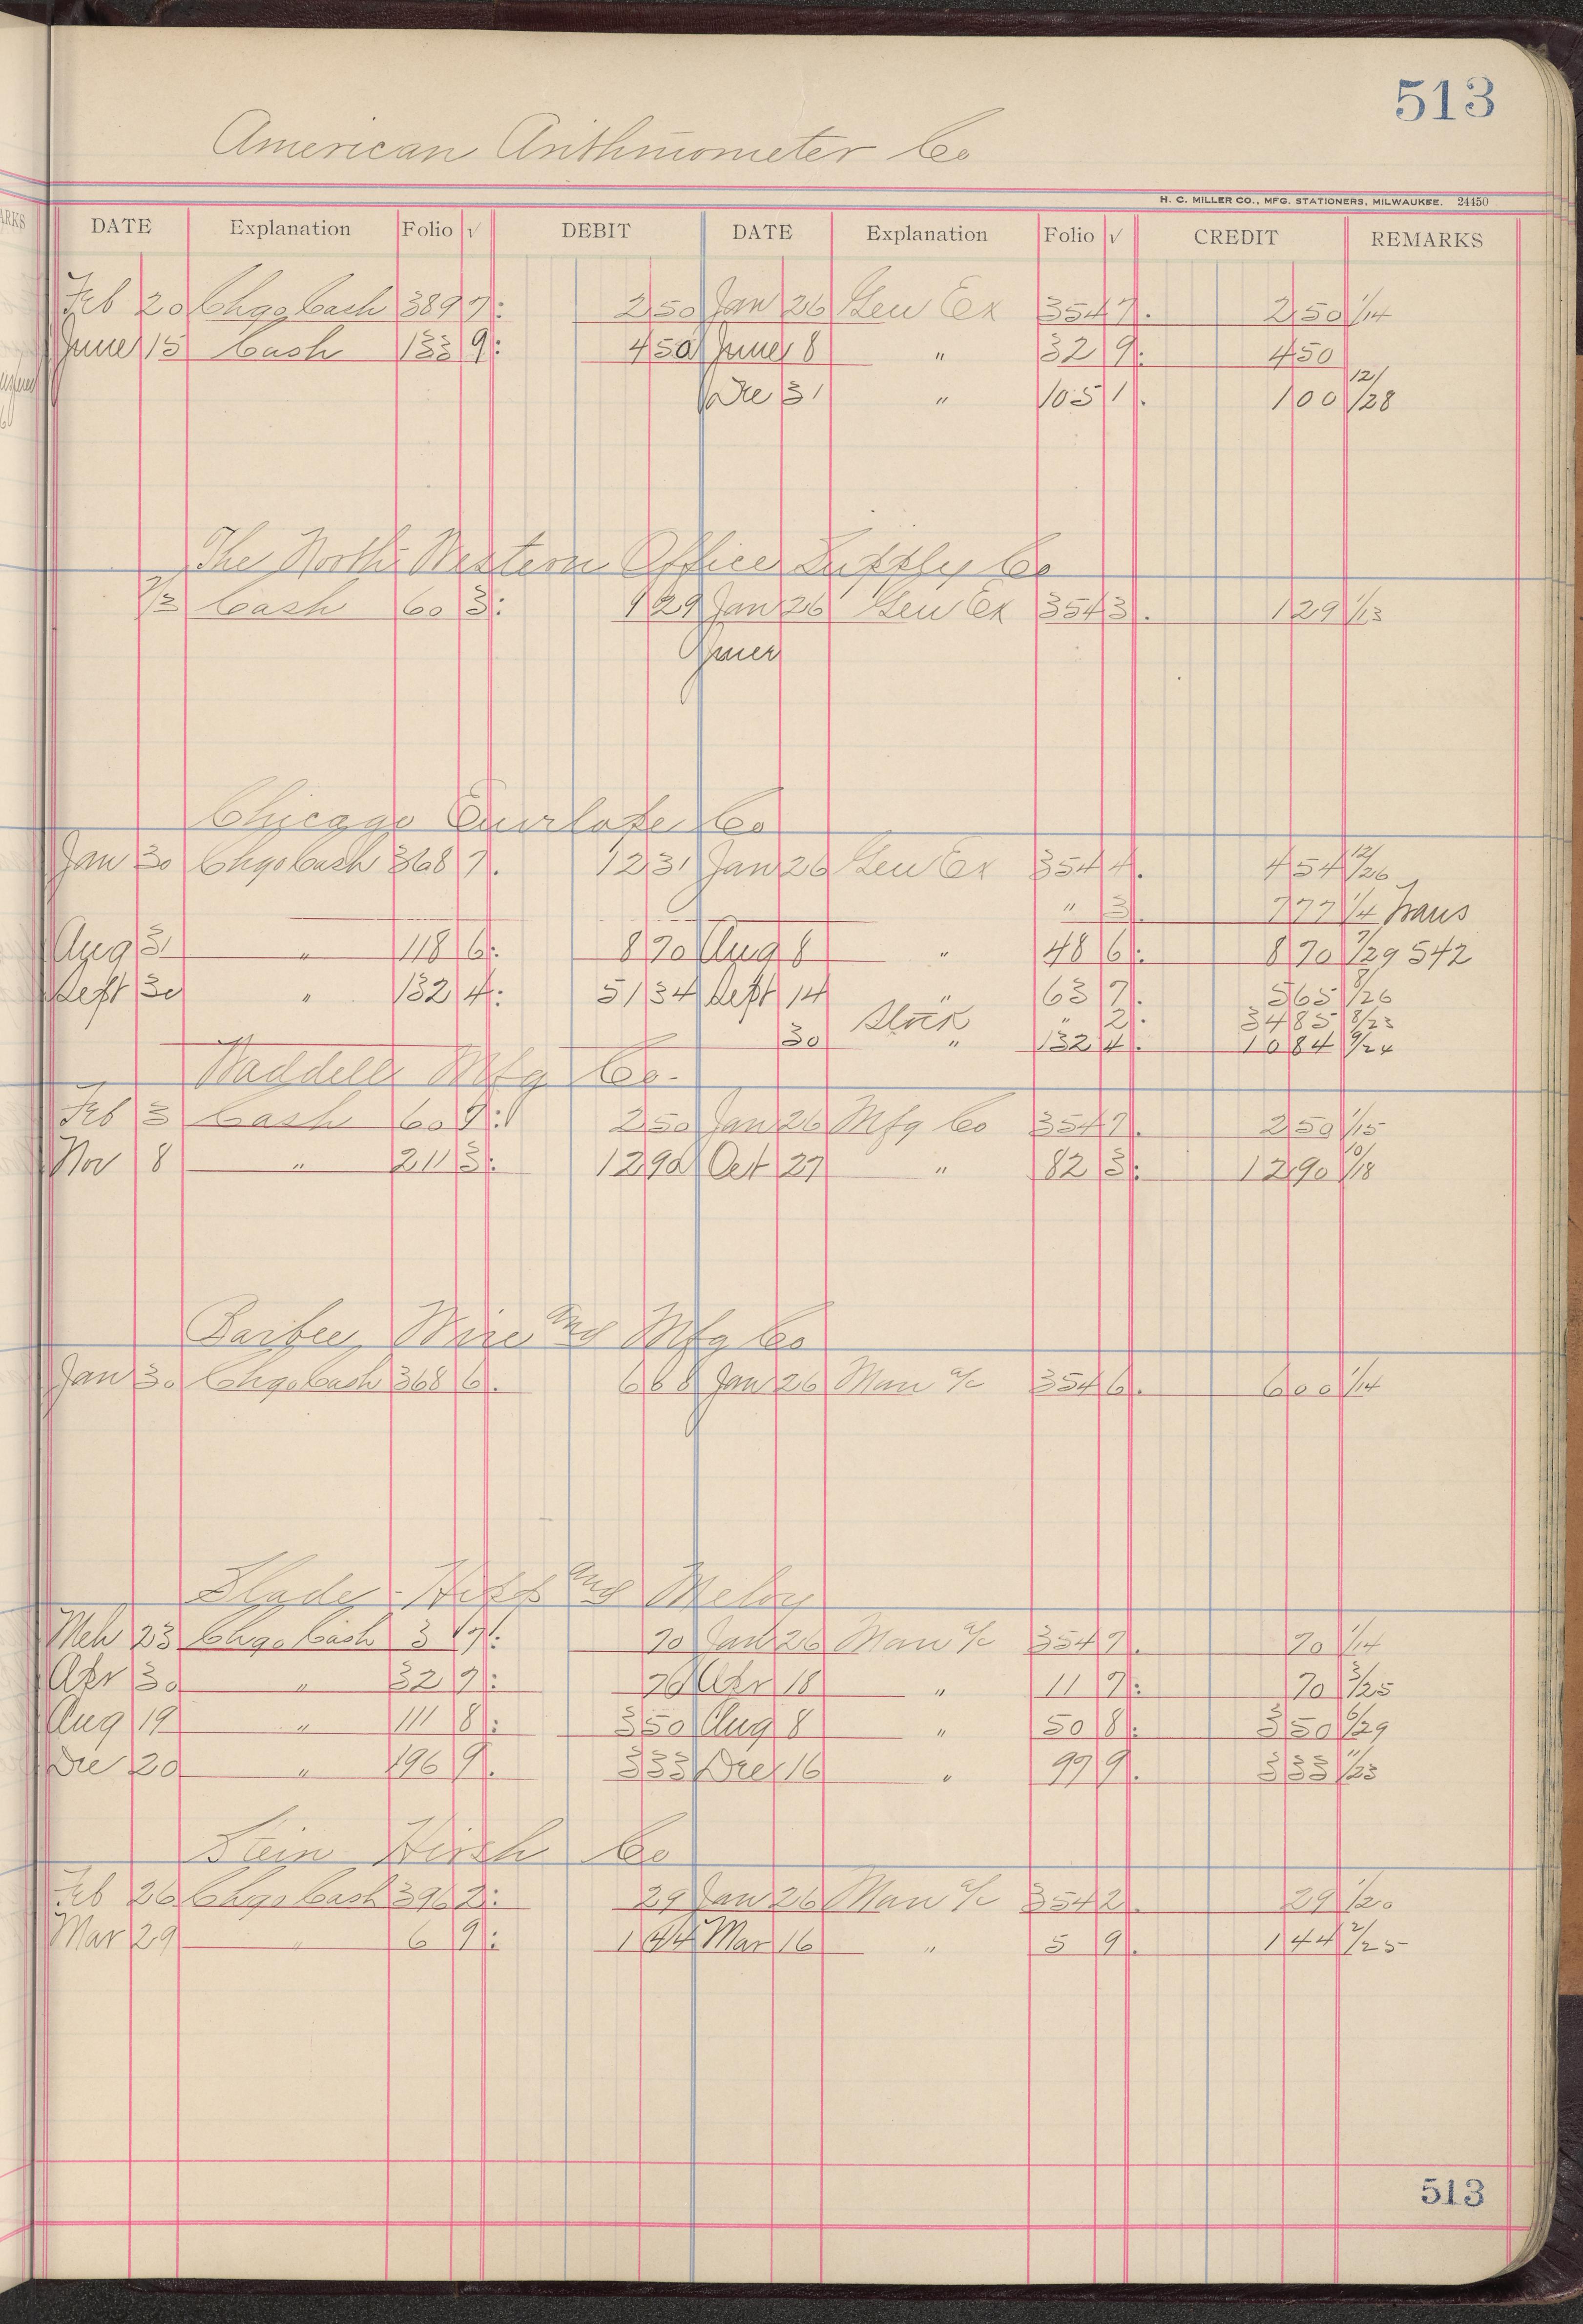 513
American Arithmometer Co
H. C. MILLER CO., MFG. STATIONERS, MILWAUKEE. 24450
DATE Explanation Folio √ DEBIT DATE Explanation Folio √ CREDIT REMARKS
Feb 20 Chgo Cash 389 7: 2 50 Jan 26 Gen Ex 354 7. 2 50 1/14
June 15 Cash 133 9: 4 50 June 8 " 32 9: 4 50
Dec 31 " 105 1. 1 00 12/28
The North Western Office Supply Co
2/3 Cash 60 3: 1 29 Jan 26 Gen Ex 354 3. 1 29 1/13
Chicago Envelope Co
Jan 30 Chgo Cash 368 7. 12 31 Jan 26 Gen Ex 354 4. 4 54 12/26
" 3. 7 77 1/4 Trans
Aug 31 " 118 6: 8 70 Aug 8 " 48 6: 8 70 7/29 542
Sept 30 " 132 4: 51 34 Sept 14 " 63 7. 5 65 8/26
Stock " 2. 34 85 8/23
30 " 132 4. 10 84 9/24
Waddell Mfg Co.
Feb 3 Cash 60 7: 2 50 Jan 26 Mfg Co 354 7. 2 50 1/15
Nov 8 " 211 3: 12 90 Oct 27 " 82 3: 12 90 10/18
Barbee Wire and Mfg Co
Jan 30 Chgo Cash 368 6. 6 Jan 26 Man a/c 354 6. 6 00 1/14
Slade - Hipp and Meloy
Mch 23 Chgo Cash 3 7: 70 Jan 26 Man a/c 354 7. 70 1/14
Apr 30 " 32 7: 70 Apr 18 " 11 7: 70 3/25
Aug 19 " 111 8: 3 50 Aug 8 " 50 8: 3 50 6/29
Dec 20 " 196 9. 3 33 Dec 16 " 97 9. 3 33 11/23
Stein Hirsh Co
Feb 26 Chgo Cash 396 2: 29 Jan 26 Man a/c 354 2. 29 1/20
Mar 29 " 6 9: 1 44 Mar 16 " 5 9. 1 44 2/25
513